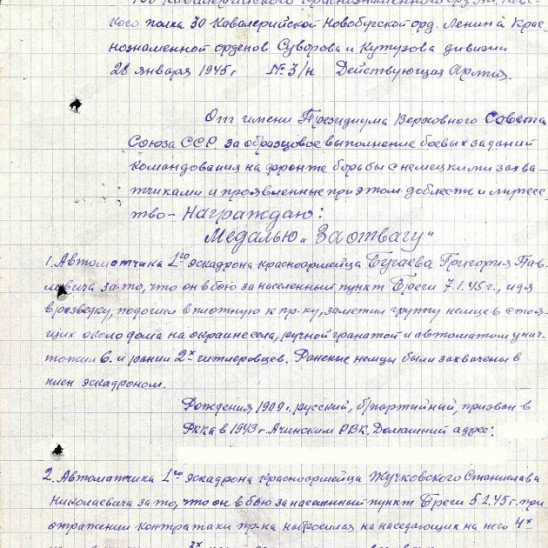 кого полка 30 Кавалерийской Новобугской орд. Ленина Крас-
нознаменной орденов Суворова и Кутузова дивизии
28 января 1945г № 3/н Действующая Армия.
От имени Президиума Верховного Совета
Союза ССР. за образцовое выполнение боевых заданий
командования на фронте борьбы с немецкими захва-
тчиками и проявленные при этом доблесть и мужес-
тво – Награждаю:
Медалью „За отвагу"
1. Автоматчика 1го эскадрона красноармейца Бугаева Григория Пав-
ловича за то, что он в бою за населенный пункт Бреги 7.1.45г., идя
в разведку, подошел вплотную к пр-ку, заметил группу немцев стоя-
щих около дома на окраине села, ручной гранатой и автоматом унич-
тожил 6 и ранил 2х гитлеровцев. Раненые немцы были захвачены в
плен эскадроном.
Рождения 1909г, русский, б/партийный, призван в
РККА в 1943г Ачинским РВК. Домашний адрес:
2. Автоматчика 1го эскадрона красноармейца Жучковского Станислава
Николаевича за то, что он в бою за населенный пункт Бреги 5.1.45г. при
отражении контратаки пр-ка набросился на наседающих на него 4х